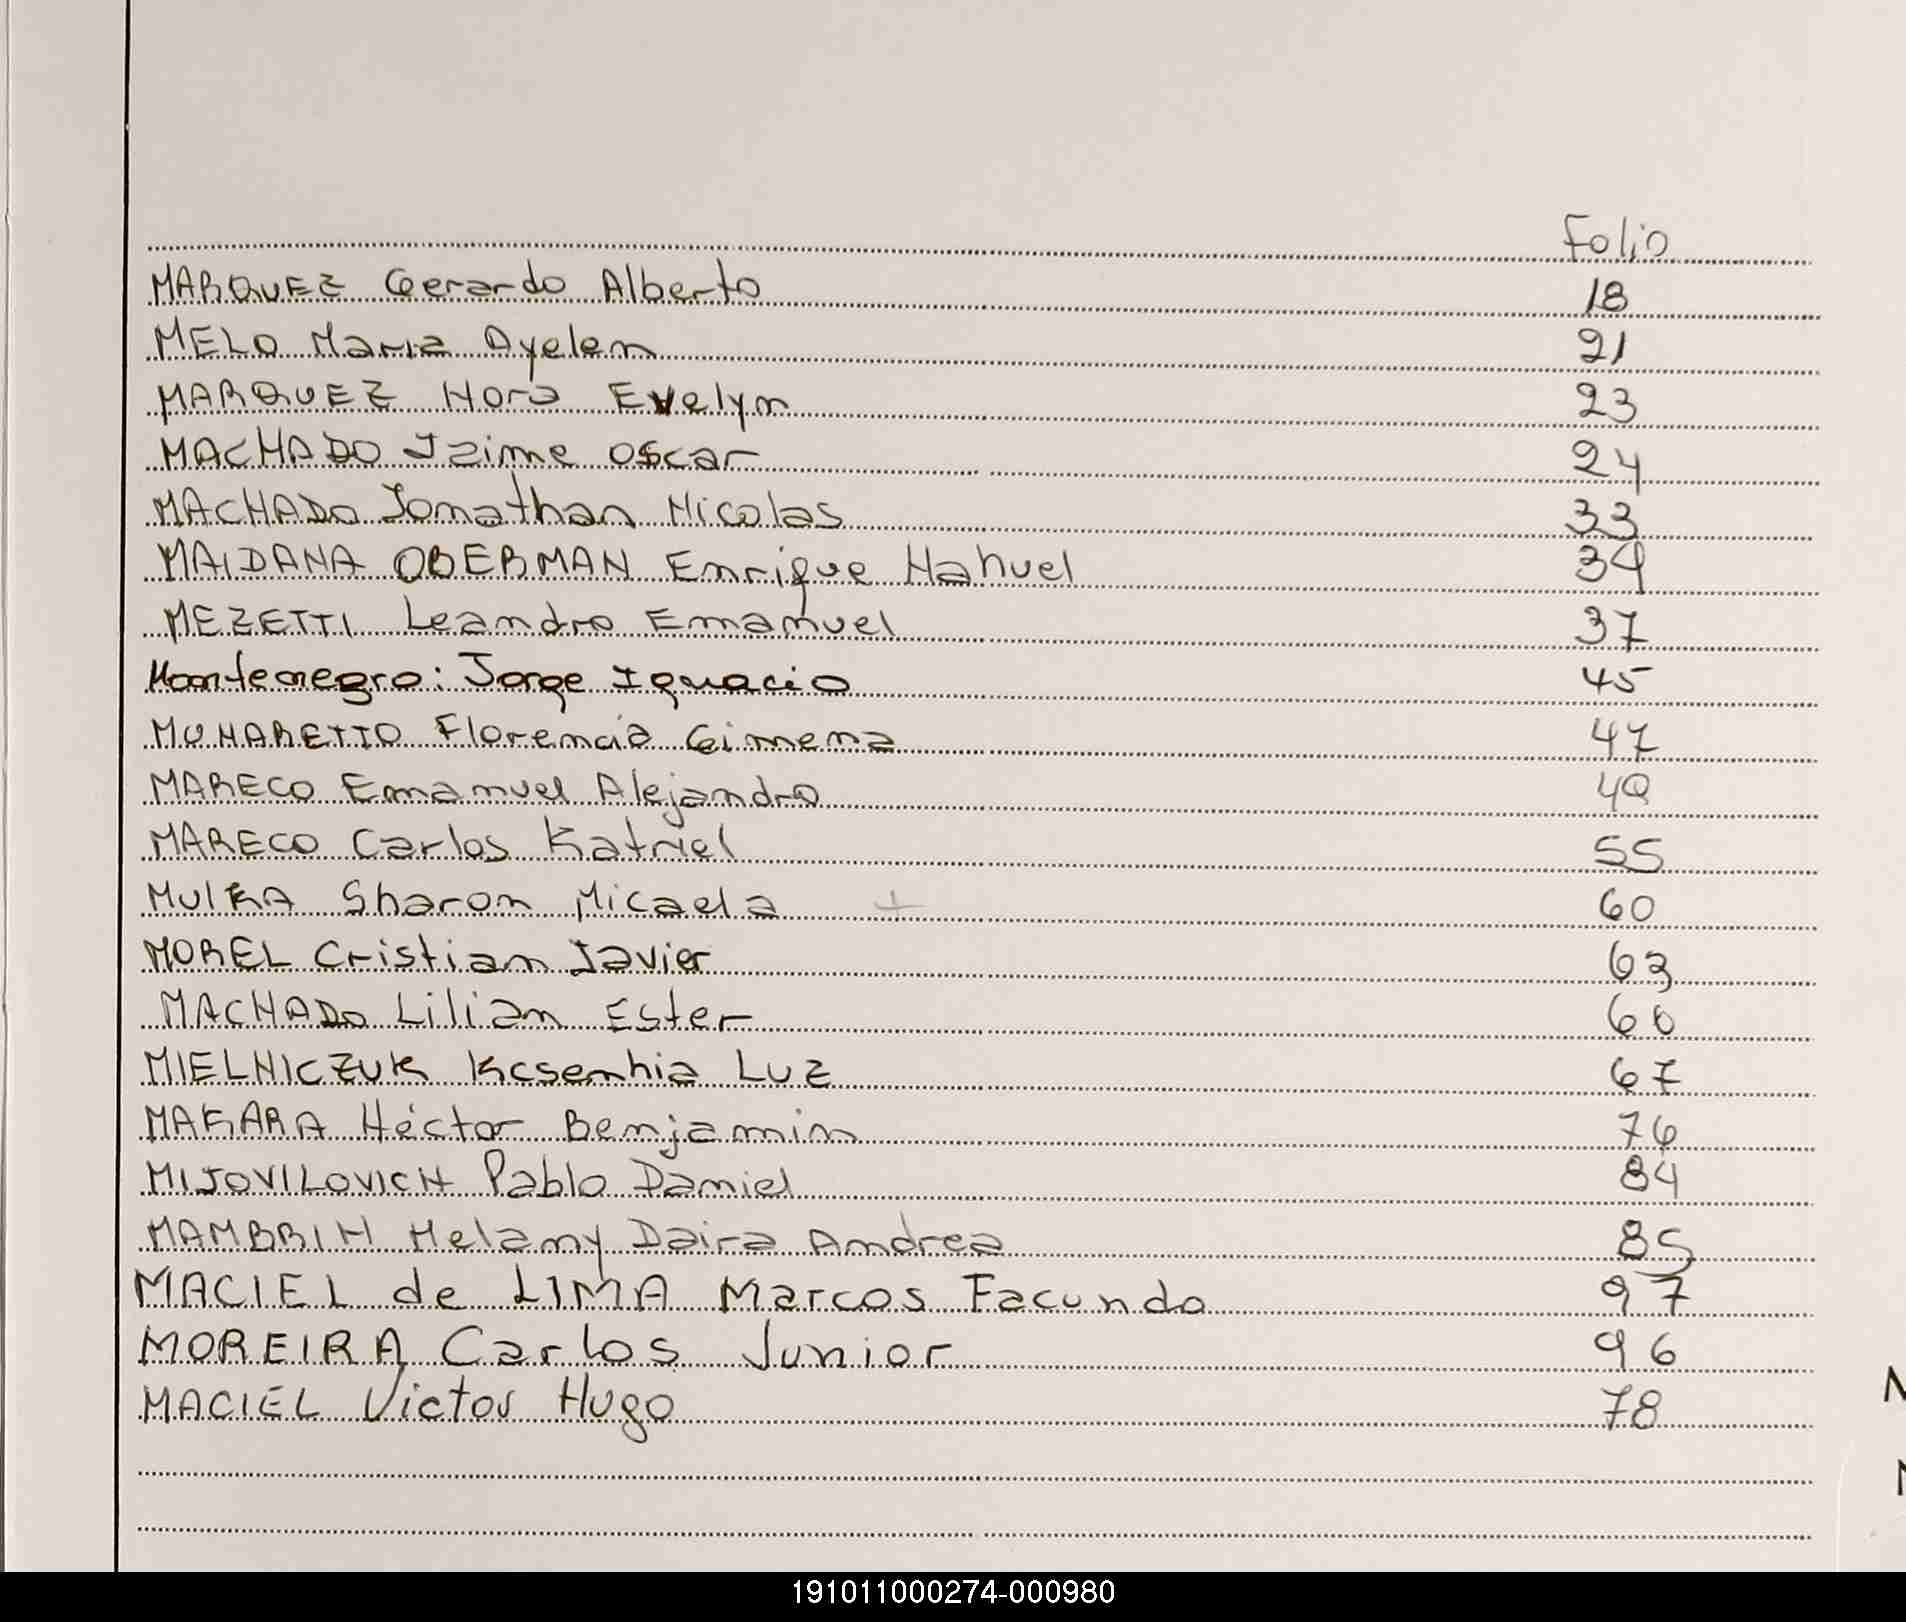 Folio
MARQUEZ Gerardo Alberto 18
MELO Maria Ayelen 21
MARQUEZ Nora Evelyn 23
MACHADO Jaime Oscar 24
MACHADO Jonathan Nicolas 33
MAIDANA OBERMAN Enrique Nahuel 34
MEZETTI Leandro Emanuel 37
Montenegro: Jorge Ignacio 45
MUNARETTO Florencia Gimena 47
MARECO Emanuel Alejandro 49
MARECO Carlos Katriel 55
MULKA Sharon Micaela + 60
MOREL Cristian Javier 63
MACHADO Lilian Ester 66
MIELNICZUK Kcsenhia Luz 67
MAKARA Héctor Benjamin 76
MIJOVILOVICH Pablo Daniel 84
MAMBRIN Melany Daira Andrea 85
MACIEL de LIMA Marcos Facundo 97
MOREIRA Carlos Junior 96
MACIEL Victor Hugo 78
191011000274-000980